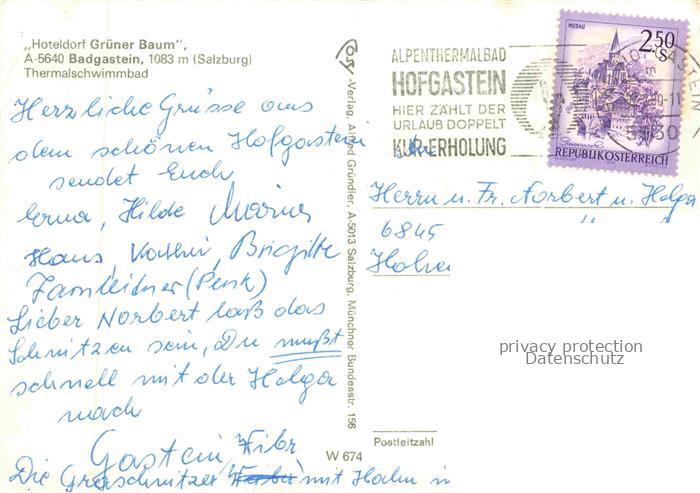 „Hoteldorf Grüner Baum",
A-5640 Badgastein, 1083 m (Salzburg)
Thermalschwimmbad
Herzliche Grüsse aus
dem schönen Hofgastein
sendet Euch
Erna, Hilde
Hans, Brigitte
(Penk)
Lieber Norbert laß das
Schnitzen sein, Du mußt
schnell mit der Helga
nach
Gastein
Die mit
Cosy-Verlag, Alfred Gründler, A-5013 Salzburg, Münchner Bundesstr. 156
ALPENTHERMALBAD
HOFGASTEIN
HIER ZÄHLT DER
URLAUB DOPPELT
KUR-ERHOLUNG
MURAU
2.50
S
REPUBLIK ÖSTERREICH
Herrn u. Fr. Norbert u. Helga
6845
privacy protection
Datenschutz
Postleitzahl
W 674